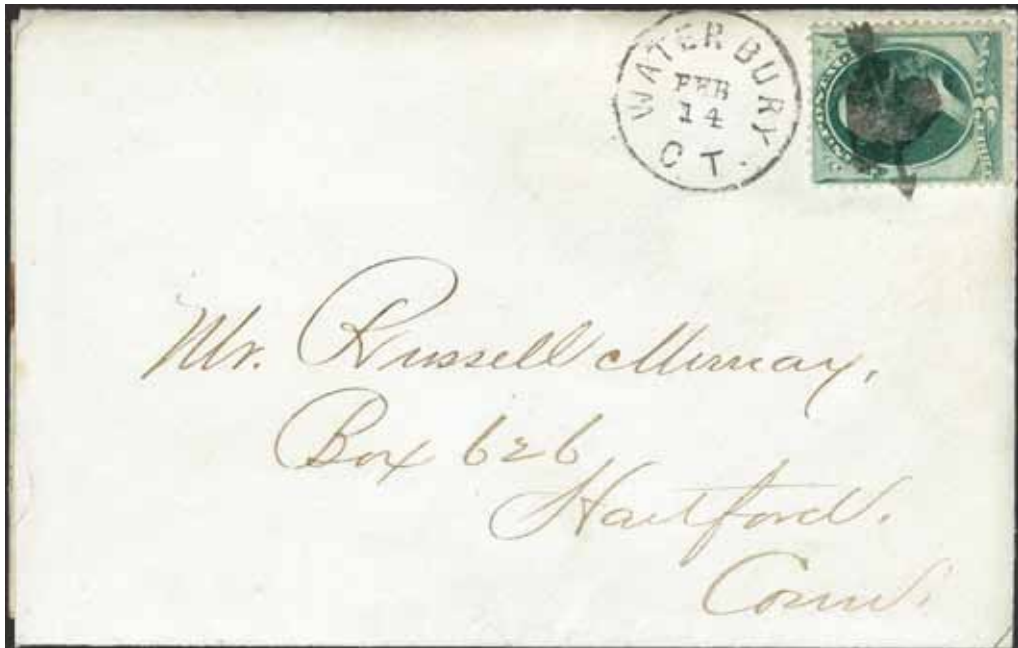 WATERBURY.
FEB
14
CT.
Mr. Russell Murray,
Box 626
Hartford.
Conn.